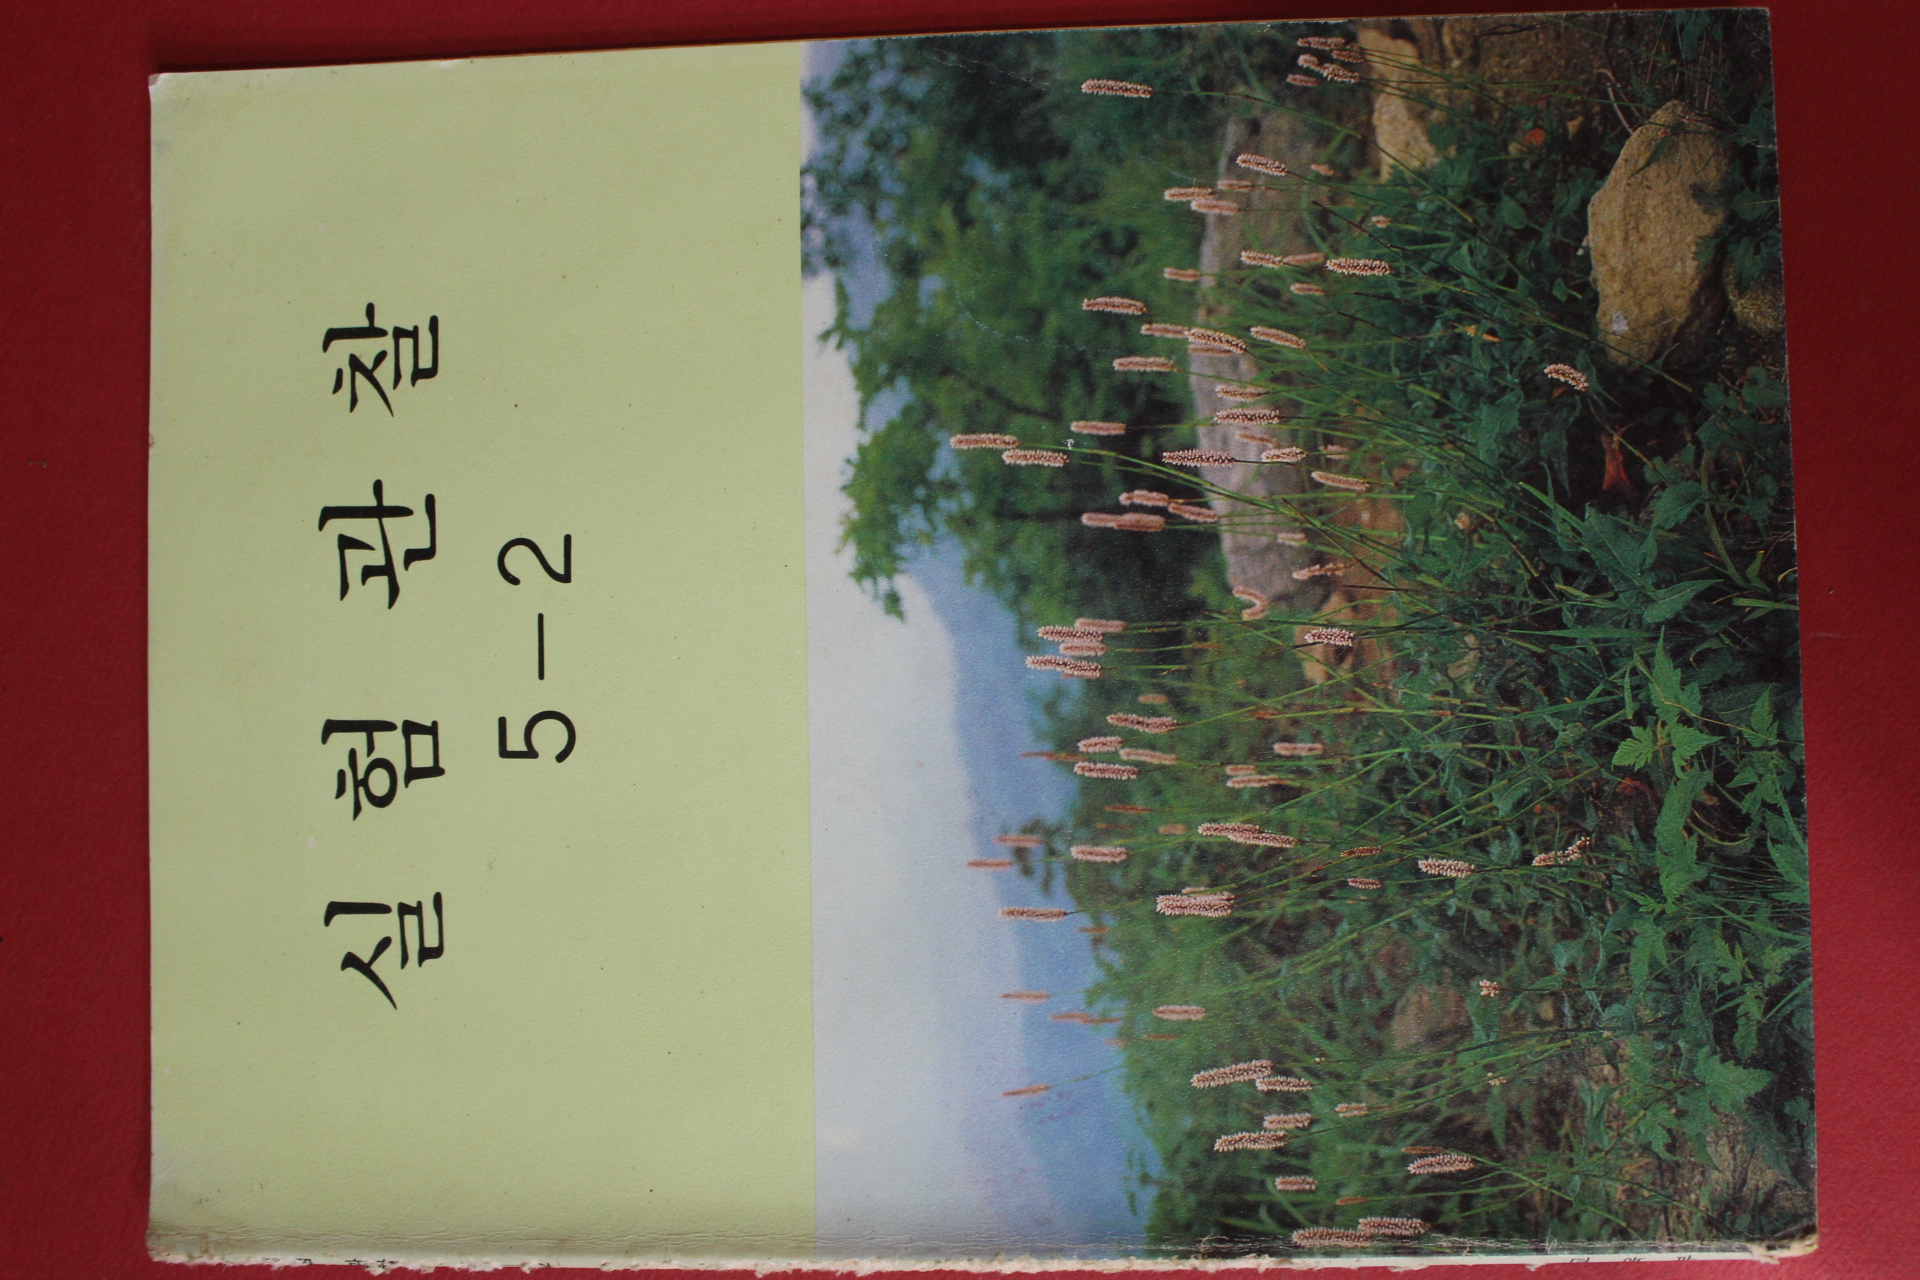 실험관찰
5-2